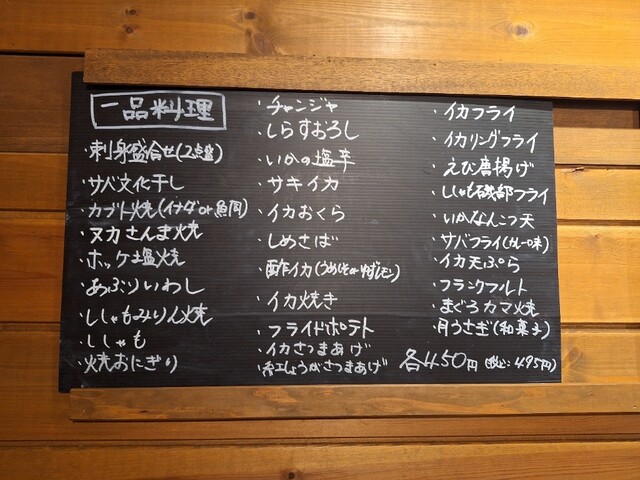 一品料理
・刺身盛合せ(2点盛)
・サバ文化干し
・カブト焼(イナダor魚周)
・ヌカさんま焼
・ホッケ塩焼
・あぶりいわし
・ししゃもみりん焼
・ししゃも
・焼おにぎり
・チャンジャ
・しらすおろし
・いかの塩辛
・サキイカ
・イカおくら
・しめさば
・酢イカ(うめしそorゆずレモン)
・イカ焼き
・フライドポテト
・イカさつまあげ
・紅しょうがさつまあげ
・イカフライ
・イカリングフライ
・えび唐揚げ
・ししゃも磯部フライ
・いかなんこつ天
・サバフライ(カレー味)
・イカ天ぷら
・フランクフルト
・まぐろカマ焼
・月うさぎ(和菓子)
各450円(税込:495円)